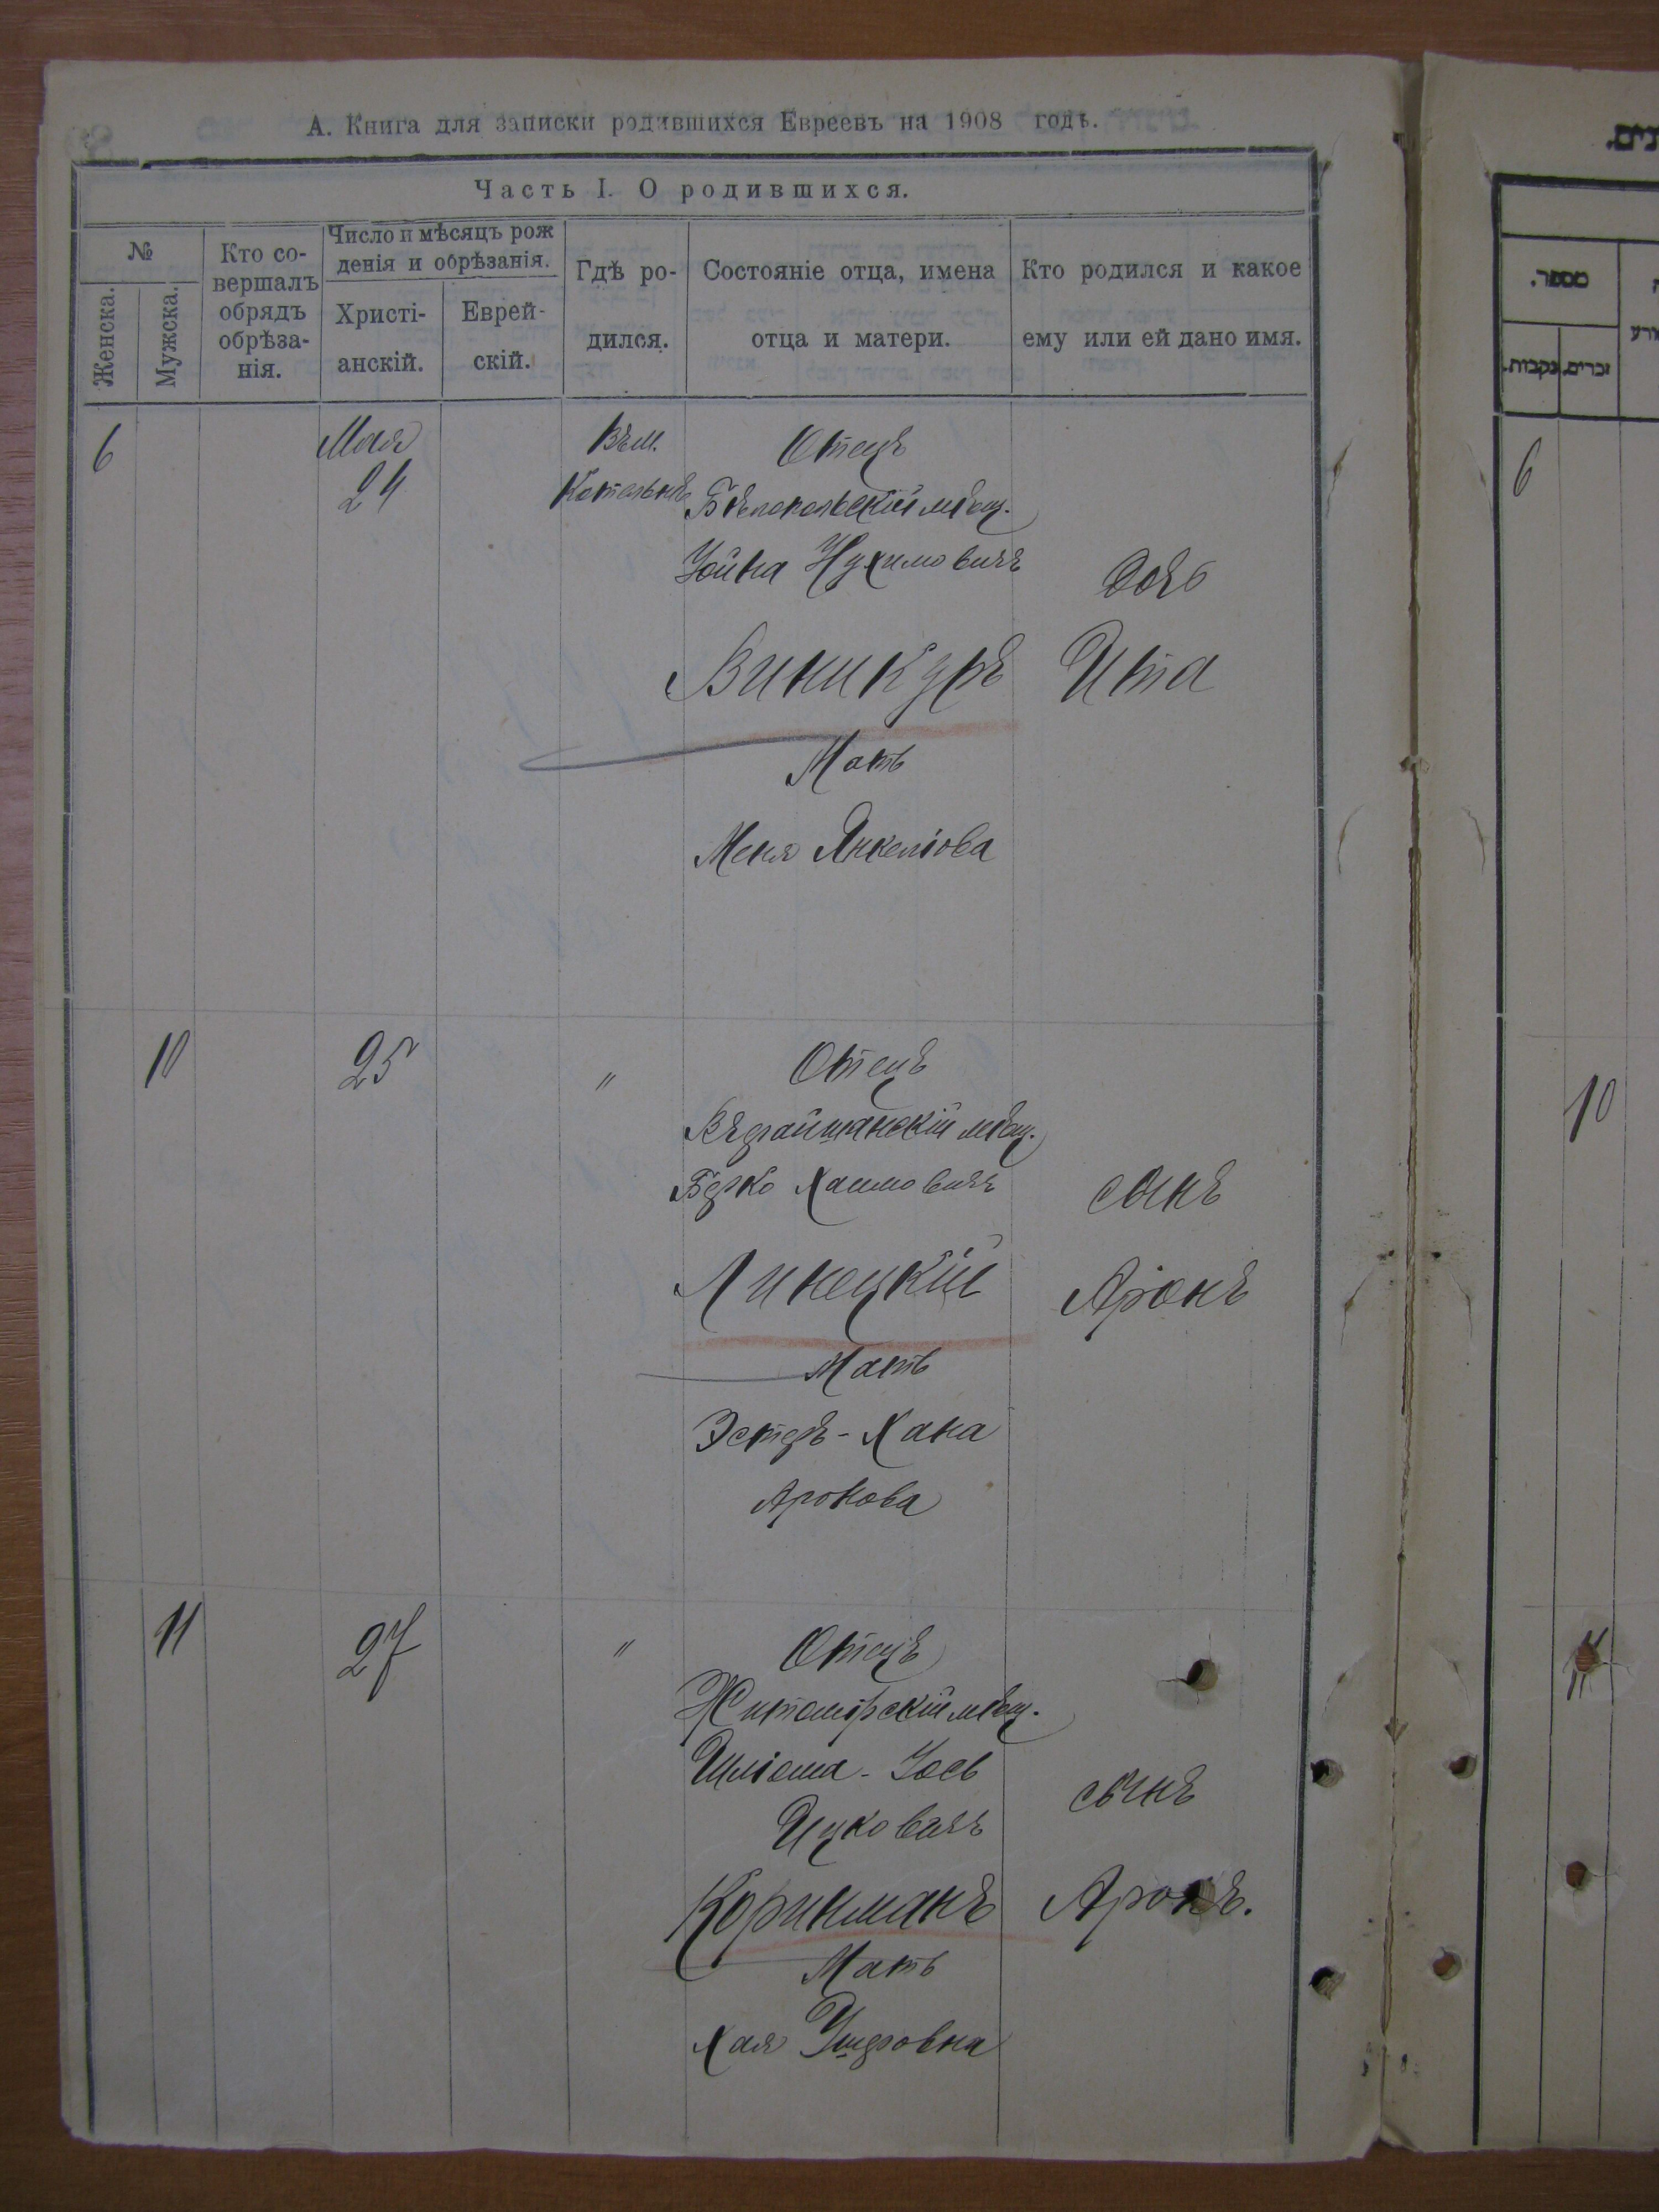 А. Книга для записки родившихся Евреевъ на 1908 годъ.
Часть I. О родившихся.
№
Женска.
Мужска.
Кто со-
вершалъ
обрядъ
обрѣза-
нія.
Число и мѣсяцъ рож
денія и обрѣзанія.
Христі-
анскій.
Еврей-
скій.
Гдѣ ро-
дился.
Состояніе отца, имена
отца и матери.
Кто родился и какое
ему или ей дано имя.
6
Мая
24
Въ м.
Котельнѣ
Отецъ
Бѣлопольскій мѣщ.
Іойна Нухимовичъ
Виникуръ
Мать
Меня Янкеліова
Дочь
Ита
10
25
"
Отецъ
мѣщ.
Берко Хаимовичъ
Линецкій
Мать
Эстеръ-Хана
Аронова
сынъ
Аронъ
11
27
"
Отецъ
Житомірскій мѣщ.
Шліома-Іось
Ицковичъ
Коринманъ
Мать
Хая Ушеровна
сынъ
Аронъ.
מספר.
נקבות.
זכרים.
6
10
11